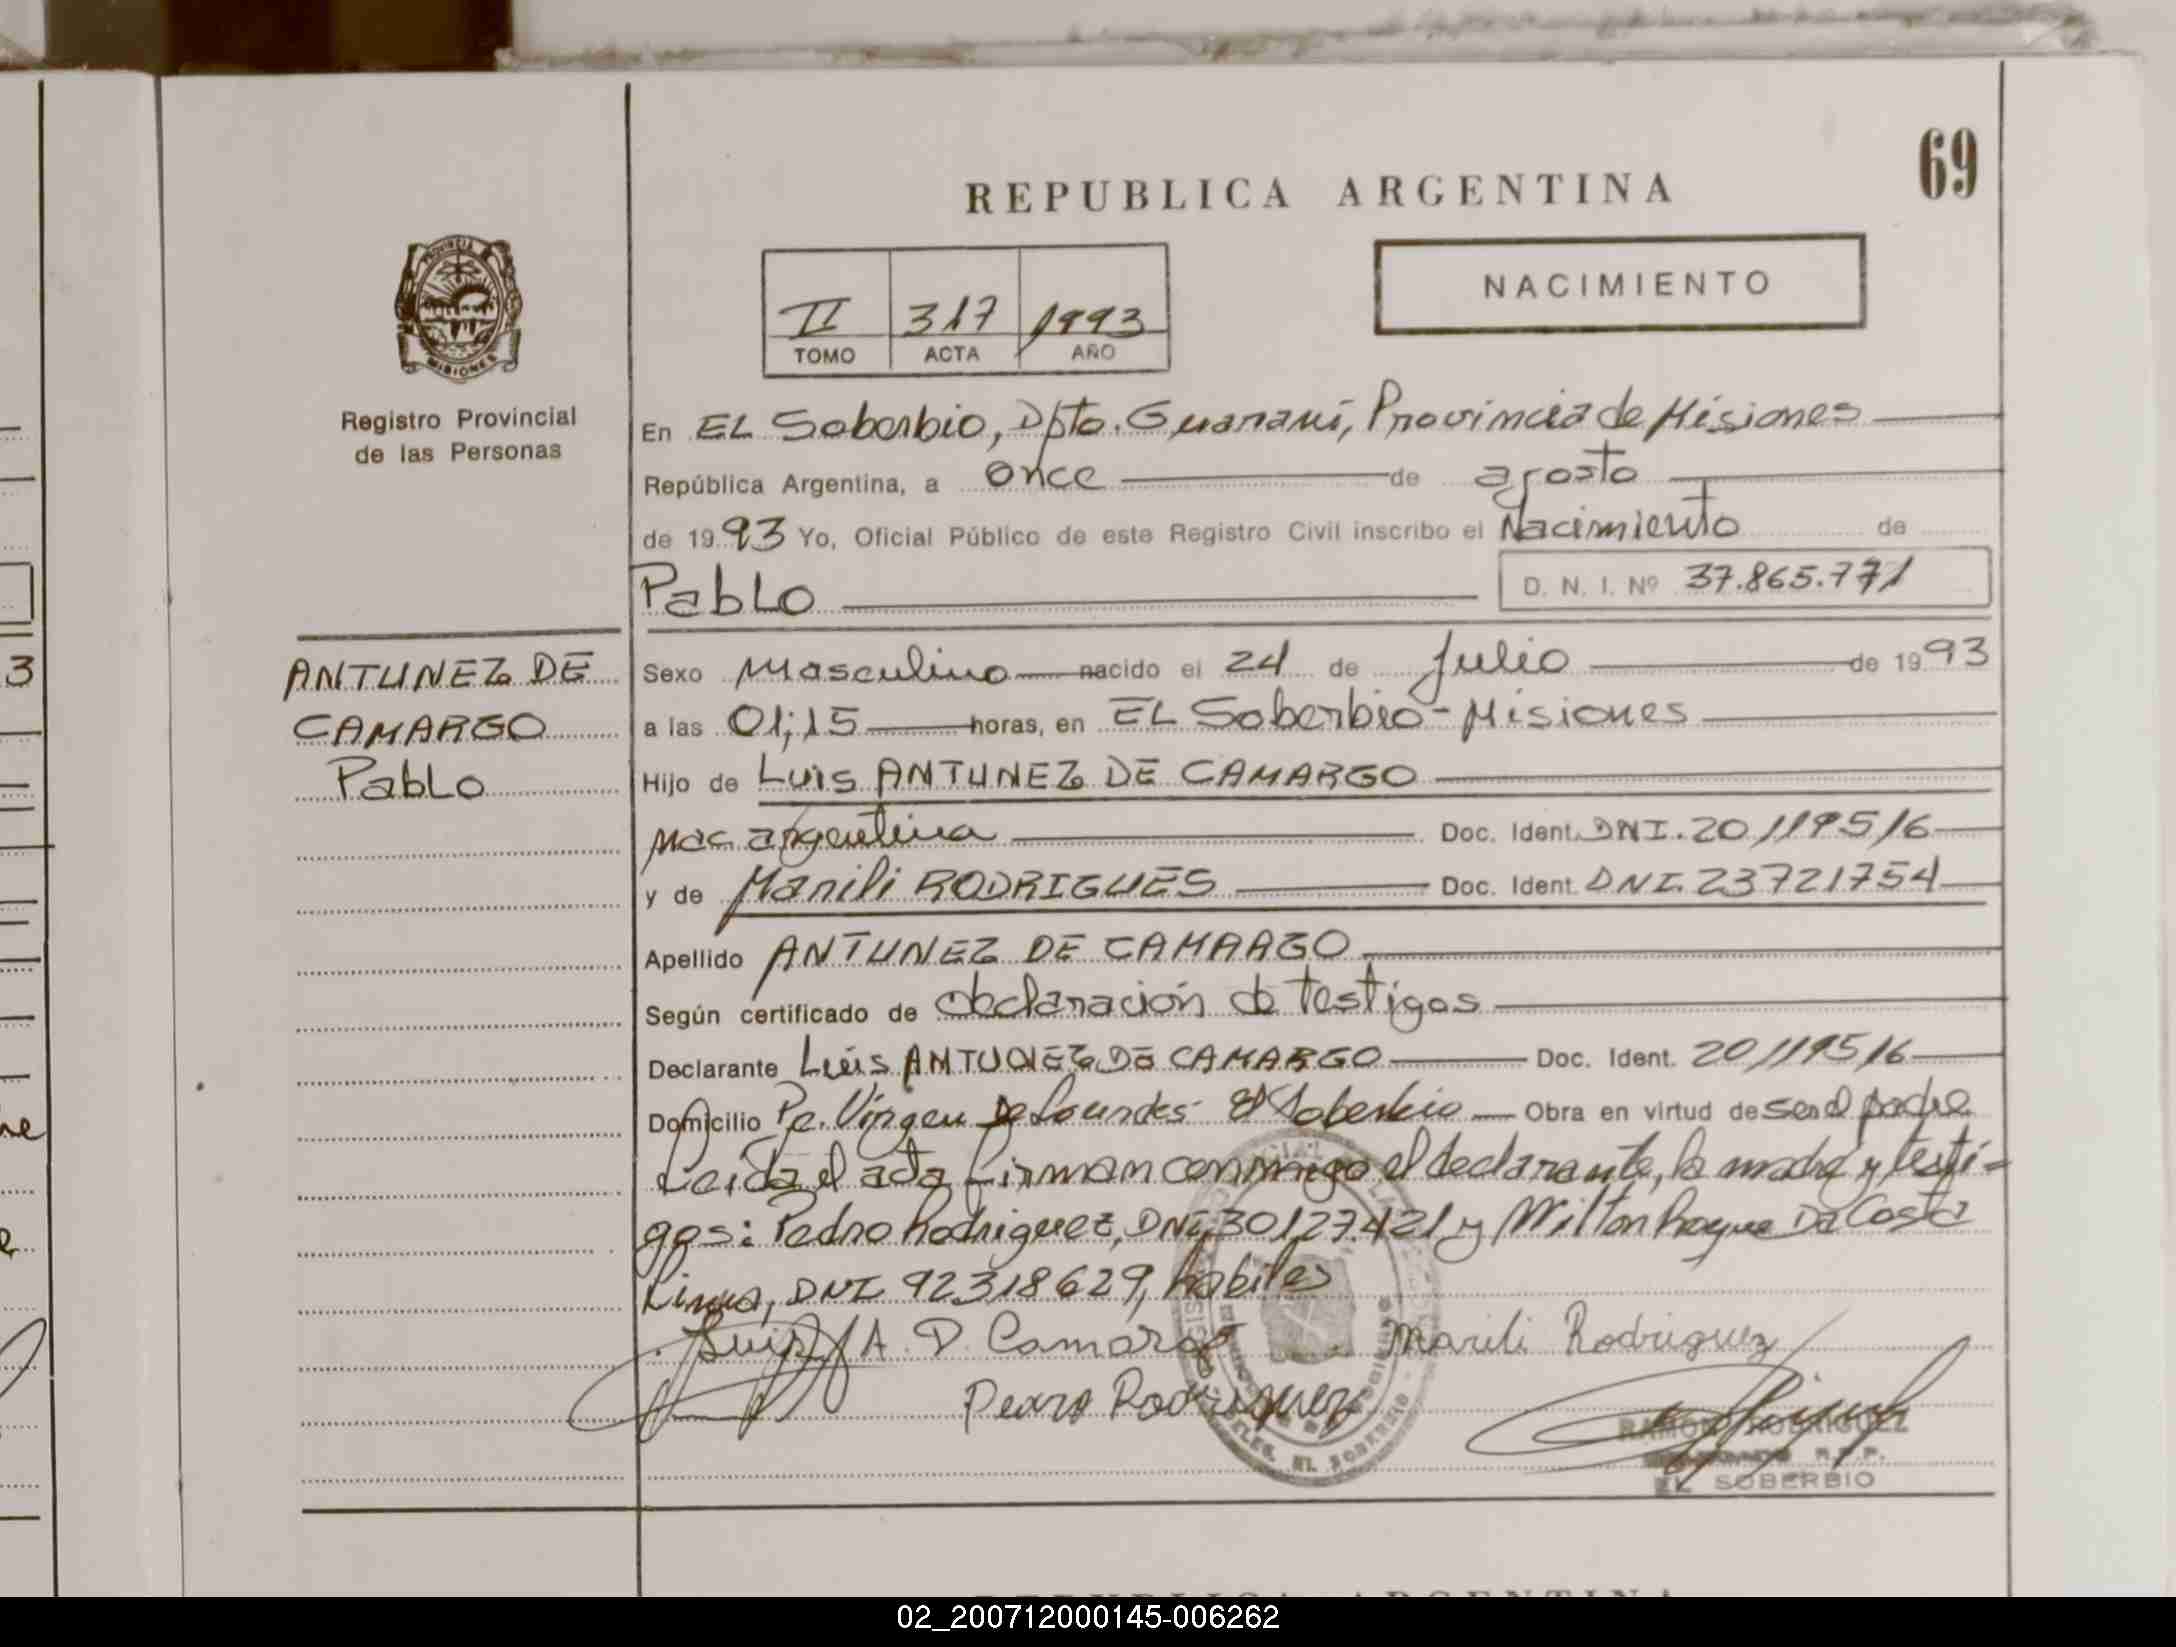 69
REPUBLICA ARGENTINA
NACIMIENTO
II 317 1993
TOMO ACTA AÑO
PROVINCIA
MISIONES
Registro Provincial
de las Personas
En EL Soberbio, Dpto. Guaraní, Provincia de Misiones
República Argentina, a once de agosto
de 1993 Yo, Oficial Público de este Registro Civil inscribo el Nacimiento de
Pablo D. N. I. Nº 37.865.771
ANTUNEZ DE
CAMARGO
Pablo
Sexo Masculino nacido el 24 de Julio de 1993
a las 01;15 horas, en EL Soberbio - Misiones
Hijo de Luis ANTUNEZ DE CAMARGO
nac. argentina Doc. Ident. DNI. 20119516
y de Marili RODRIGUES Doc. Ident. DNI. 23721754
Apellido ANTUNEZ DE CAMARGO
Según certificado de declaración de testigos
Declarante Luis ANTUNEZ DE CAMARGO Doc. Ident. 20119516
Domicilio Pe. Virgen De Lourdes El Soberbio Obra en virtud de ser el padre
Leida el acta firman conmigo el declarante, la madre y testi=
gos: Pedro Rodriguez, DNI. 30127.421 y Milton Roque Da Costa
Lima, DNI 92318629, habiles
Luis A. D. Camargo Marili Rodriguez
Pedro Rodriguez
RAMON RODRIGUEZ
R.P.P.
EL SOBERBIO
EL SOBERBIO
REPUBLICA ARGENTINA
02_200712000145-006262